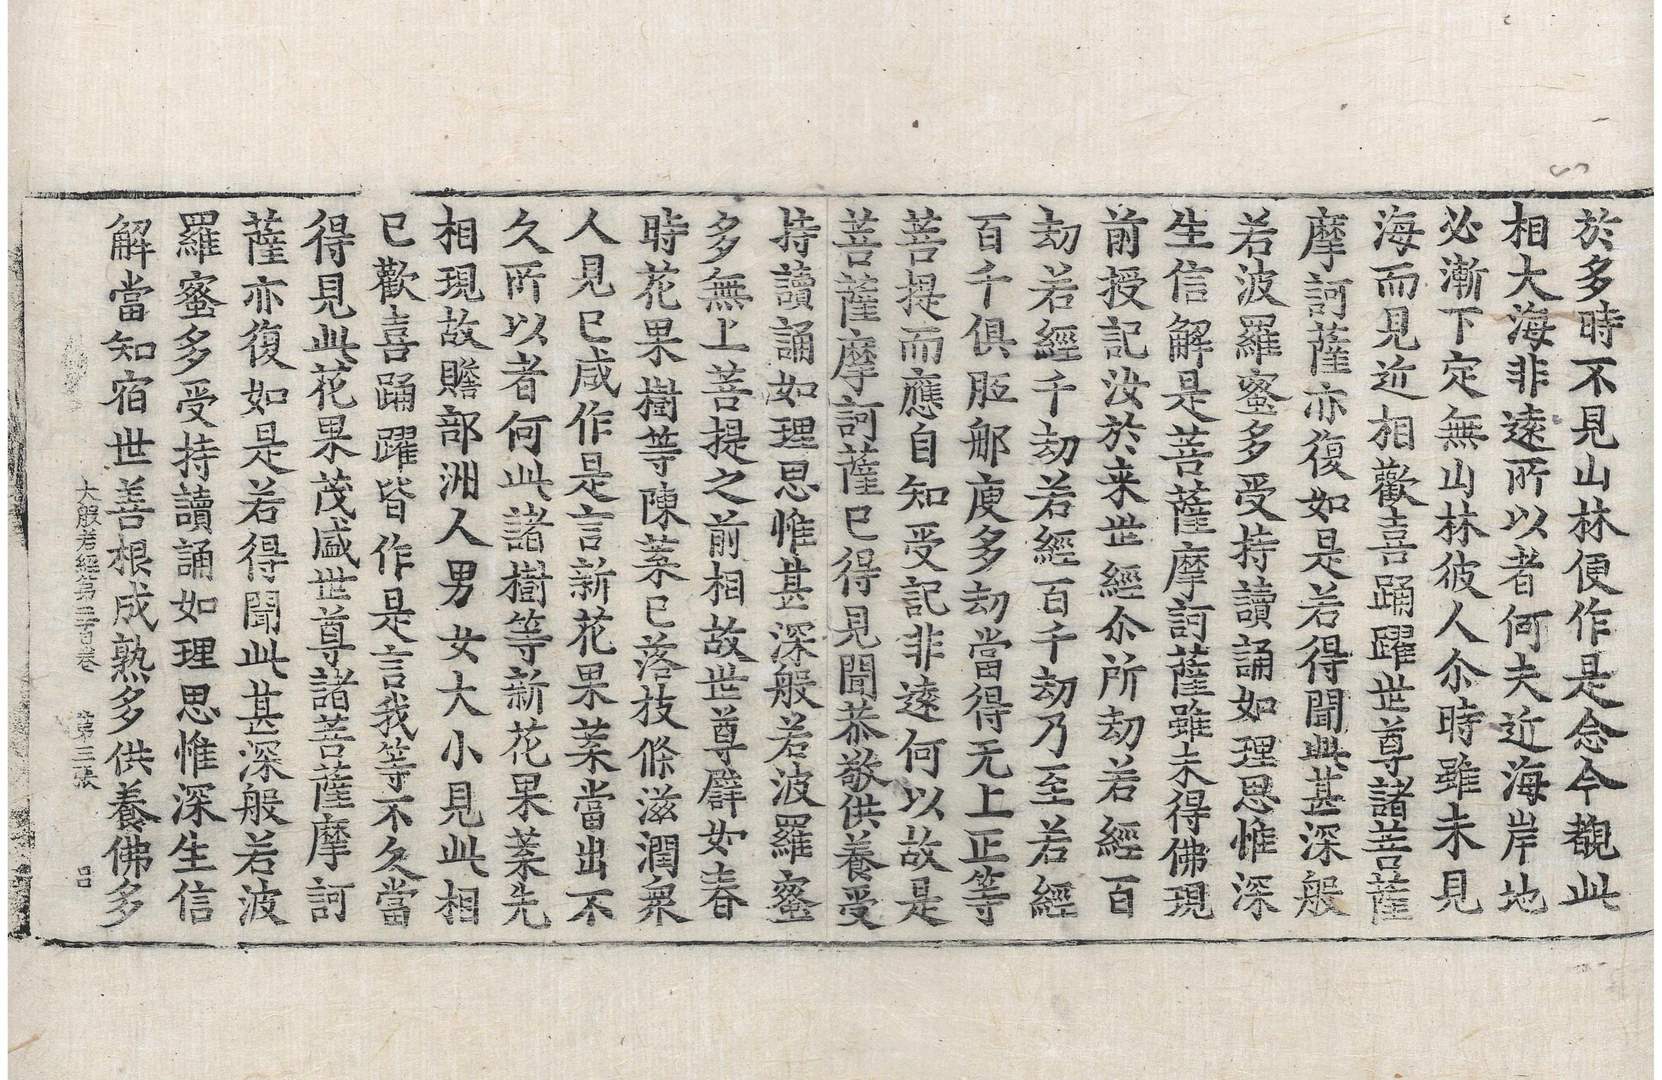 於多時不見山林便作是念今覩此
相大海非遠所以者何夫近海岸地
必漸下定無山林彼人尒時雖未見
海而見近相歡喜踊躍世尊諸菩薩
摩訶薩亦復如是若得聞此甚深般
若波羅蜜多受持讀誦如理思惟深
生信解是菩薩摩訶薩雖未得佛現
前授記汝於来世經尒所劫若經百
劫若經千劫若經百千劫乃至若經
百千俱胝郍庾多劫當得无上正等
菩提而應自知受記非遠何以故是
菩薩摩訶薩已得見聞恭敬供養受
持讀誦如理思惟甚深般若波羅蜜
多無上菩提之前相故世尊譬如春
時花果樹等陳葉已落枝條滋潤衆
人見已咸作是言新花果葉當出不
久所以者何此諸樹等新花果葉先
相現故贍部洲人男女大小見此相
已歡喜踊躍皆作是言我等不久當
得見此花果茂盛世尊諸菩薩摩訶
薩亦復如是若得聞此甚深般若波
羅蜜多受持讀誦如理思惟深生信
解當知宿世善根成熟多供養佛多
大般若經第三百卷 第三張 吕